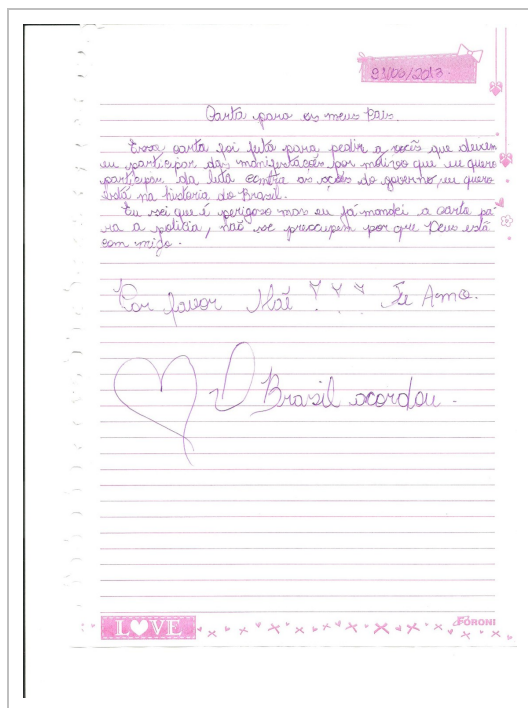 21/06/2013.
Carta para os meus Pais.
Essa carta foi feita para pedir a vocês que deixem
eu participar das manifestações por motivo que eu quero
participar da luta contra as ações do governo, eu quero
está na historia do Brasil.
Eu sei que é perigoso mas eu já mandei a carta pa-
ra a politia, não se preocupem por que Deus está
com migo.
Por favor Mãe!!! Te Amo.
O Brasil acordou.
LOVE
FORONI